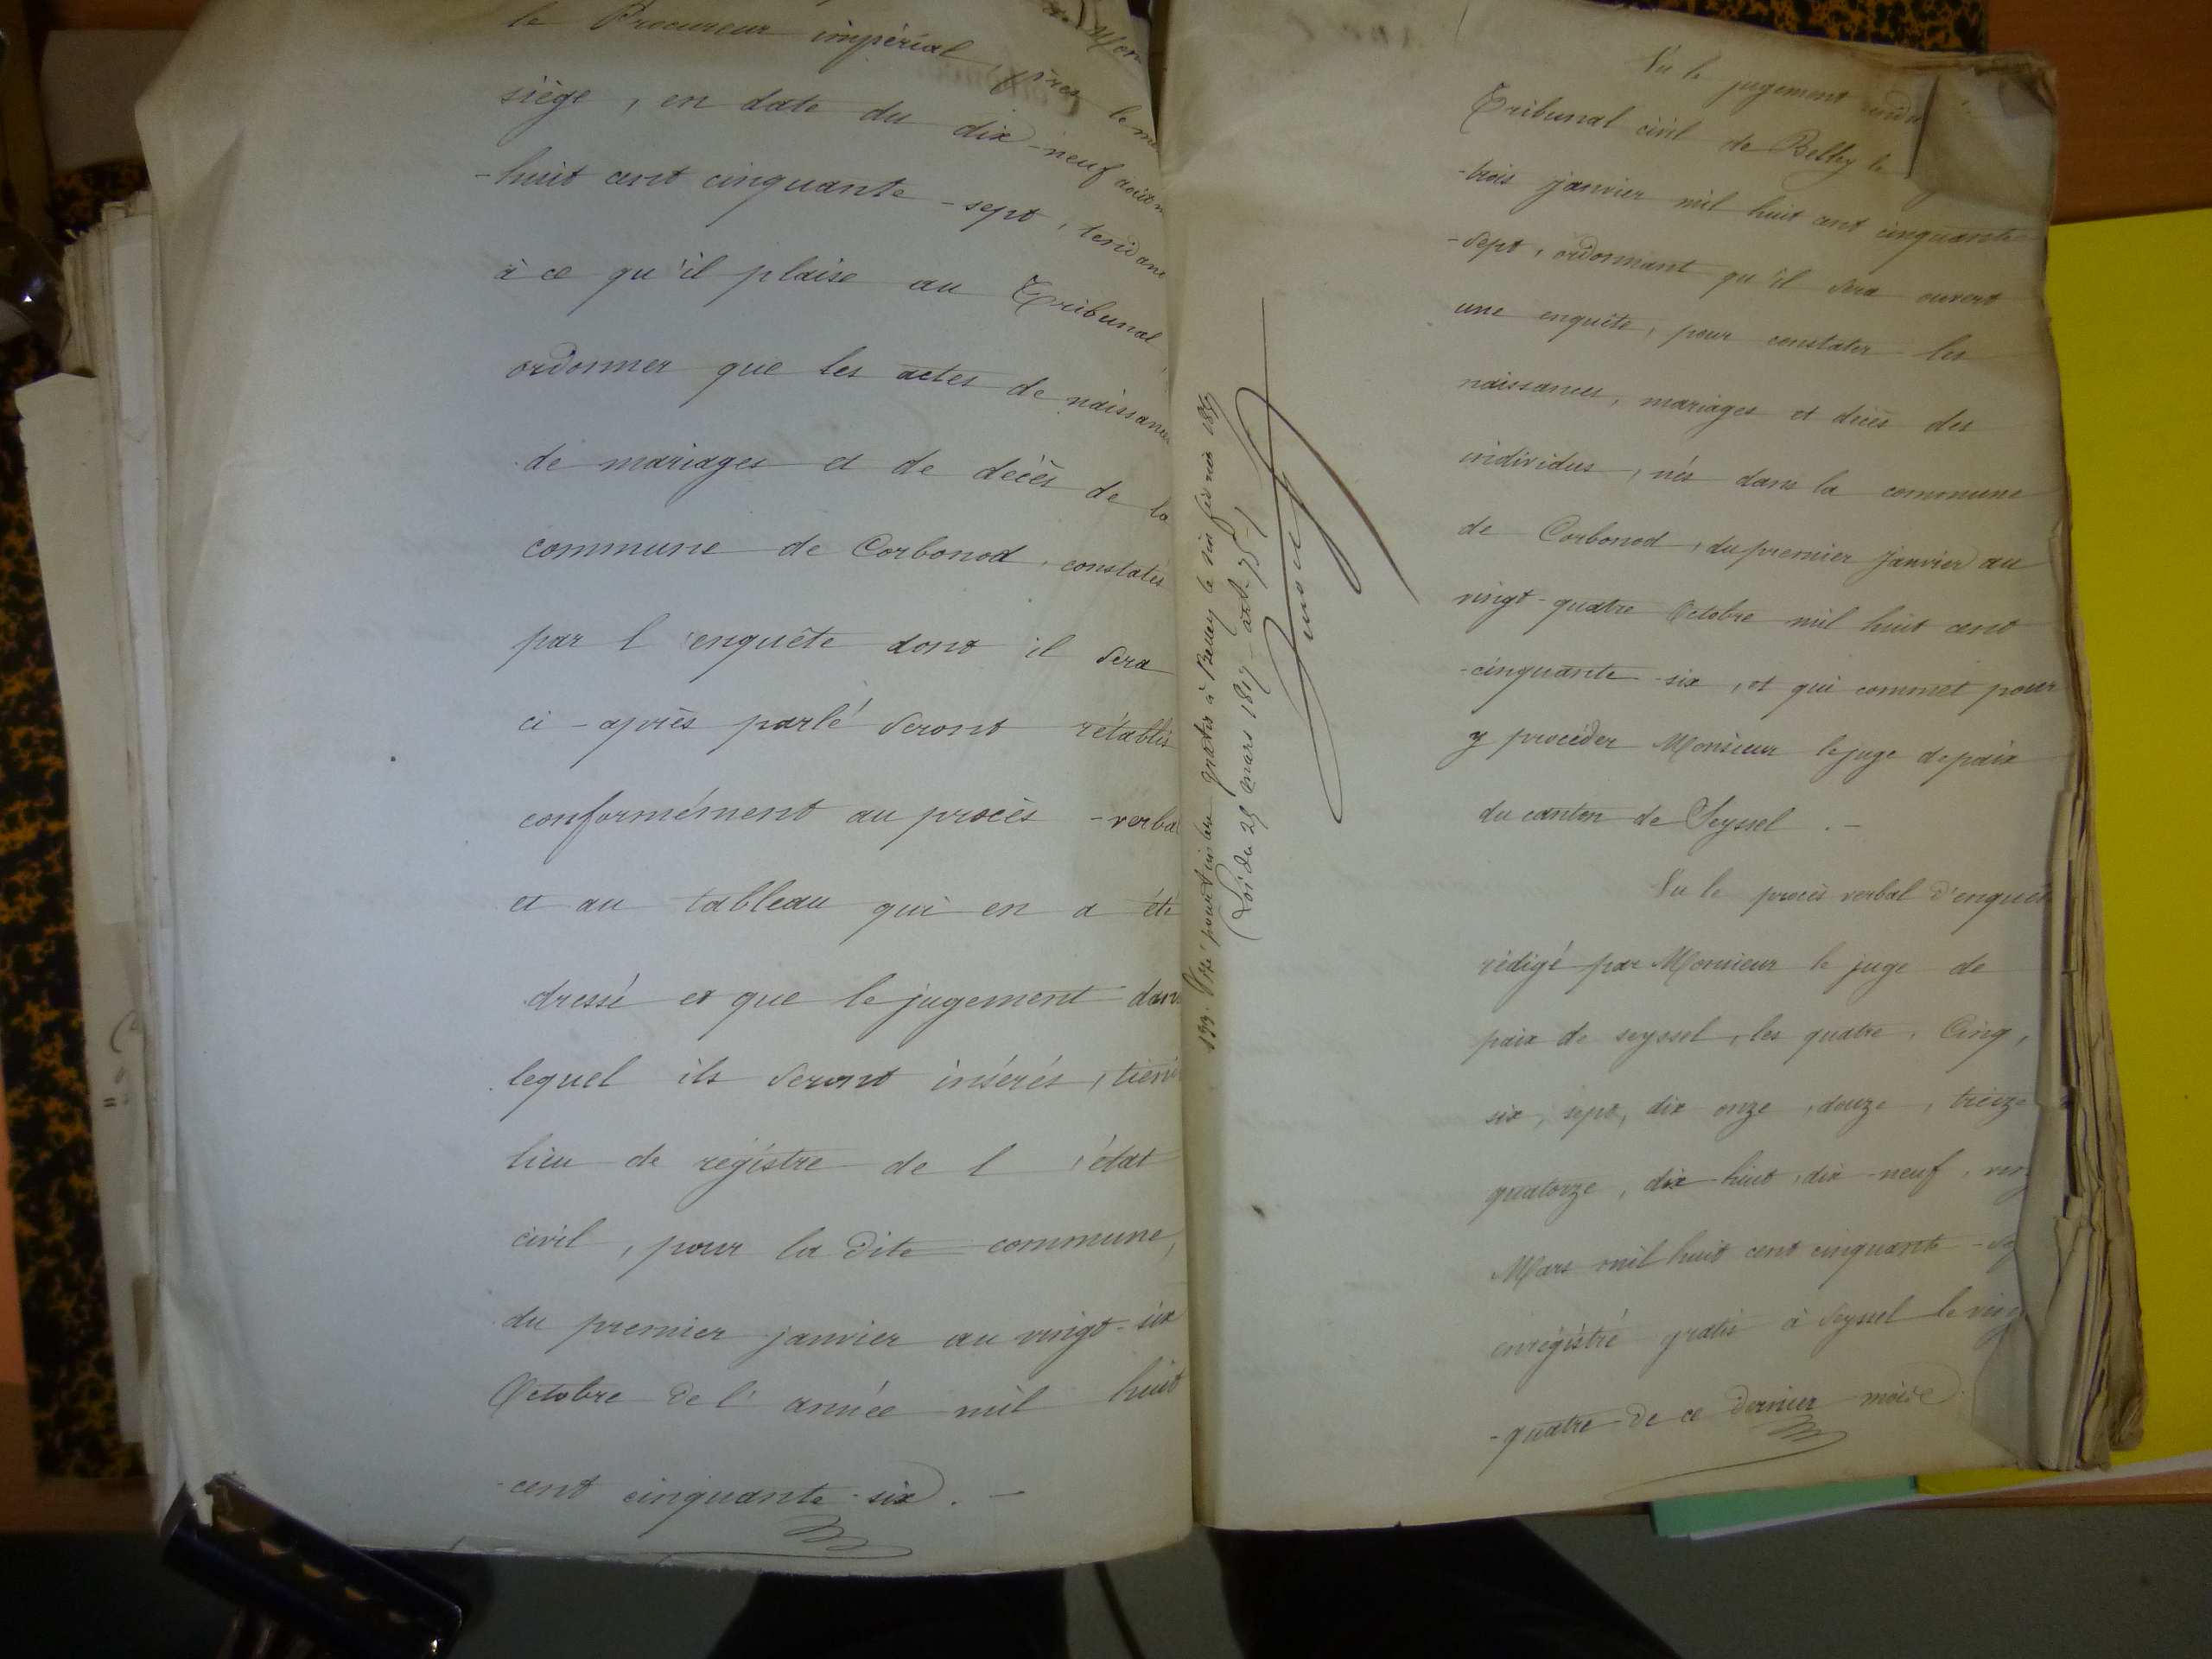 de Mon
le Procureur impérial, près le mê
siège, en date du dix-neuf août m
-huit cent cinquante-sept, tendant
à ce qu'il plaise au Tribunal
ordonner que les actes de naissance
de mariages et de décès de la
commune de Corbonod, constatés
par l'enquête dont il sera
ci-après parlé seront rétablis
conformément au procès-verbal
et au tableau qui en a été
dressé et que le jugement dans
lequel ils seront insérés, tien
lieu de régistre de l'état
civil, pour la dite commune,
du premier janvier au vingt-six
Octobre de l'année mil huit
-cent cinquante-six. —
199. Visé pour timbre gratis à Belley le six février 185
(Loi du 25 mars 1817 - art. 75 -)
Vu le jugement rendu
Tribunal civil de Belley le
-trois janvier mil huit cent cinquante
-sept, ordonnant qu'il sera ouvert
une enquête, pour constater les
naissances, mariages et décès des
individus, nés dans la commune
de Corbonod, du premier janvier au
vingt-quatre Octobre mil huit cent
-cinquante-six, et qui commet pour
y procéder Monsieur le juge de paix
du canton de Seyssel. —
Vu le procès verbal d'enquête
rédigé par Monsieur le juge de
paix de seyssel, les quatre, Cinq,
six, sept, dix onze, douze, treize
quatorze, dix-huit, dix-neuf, ving
Mars mil huit cent cinquante-se
enrégistré gratis à Seyssel le ving
-quatre de ce dernier mois